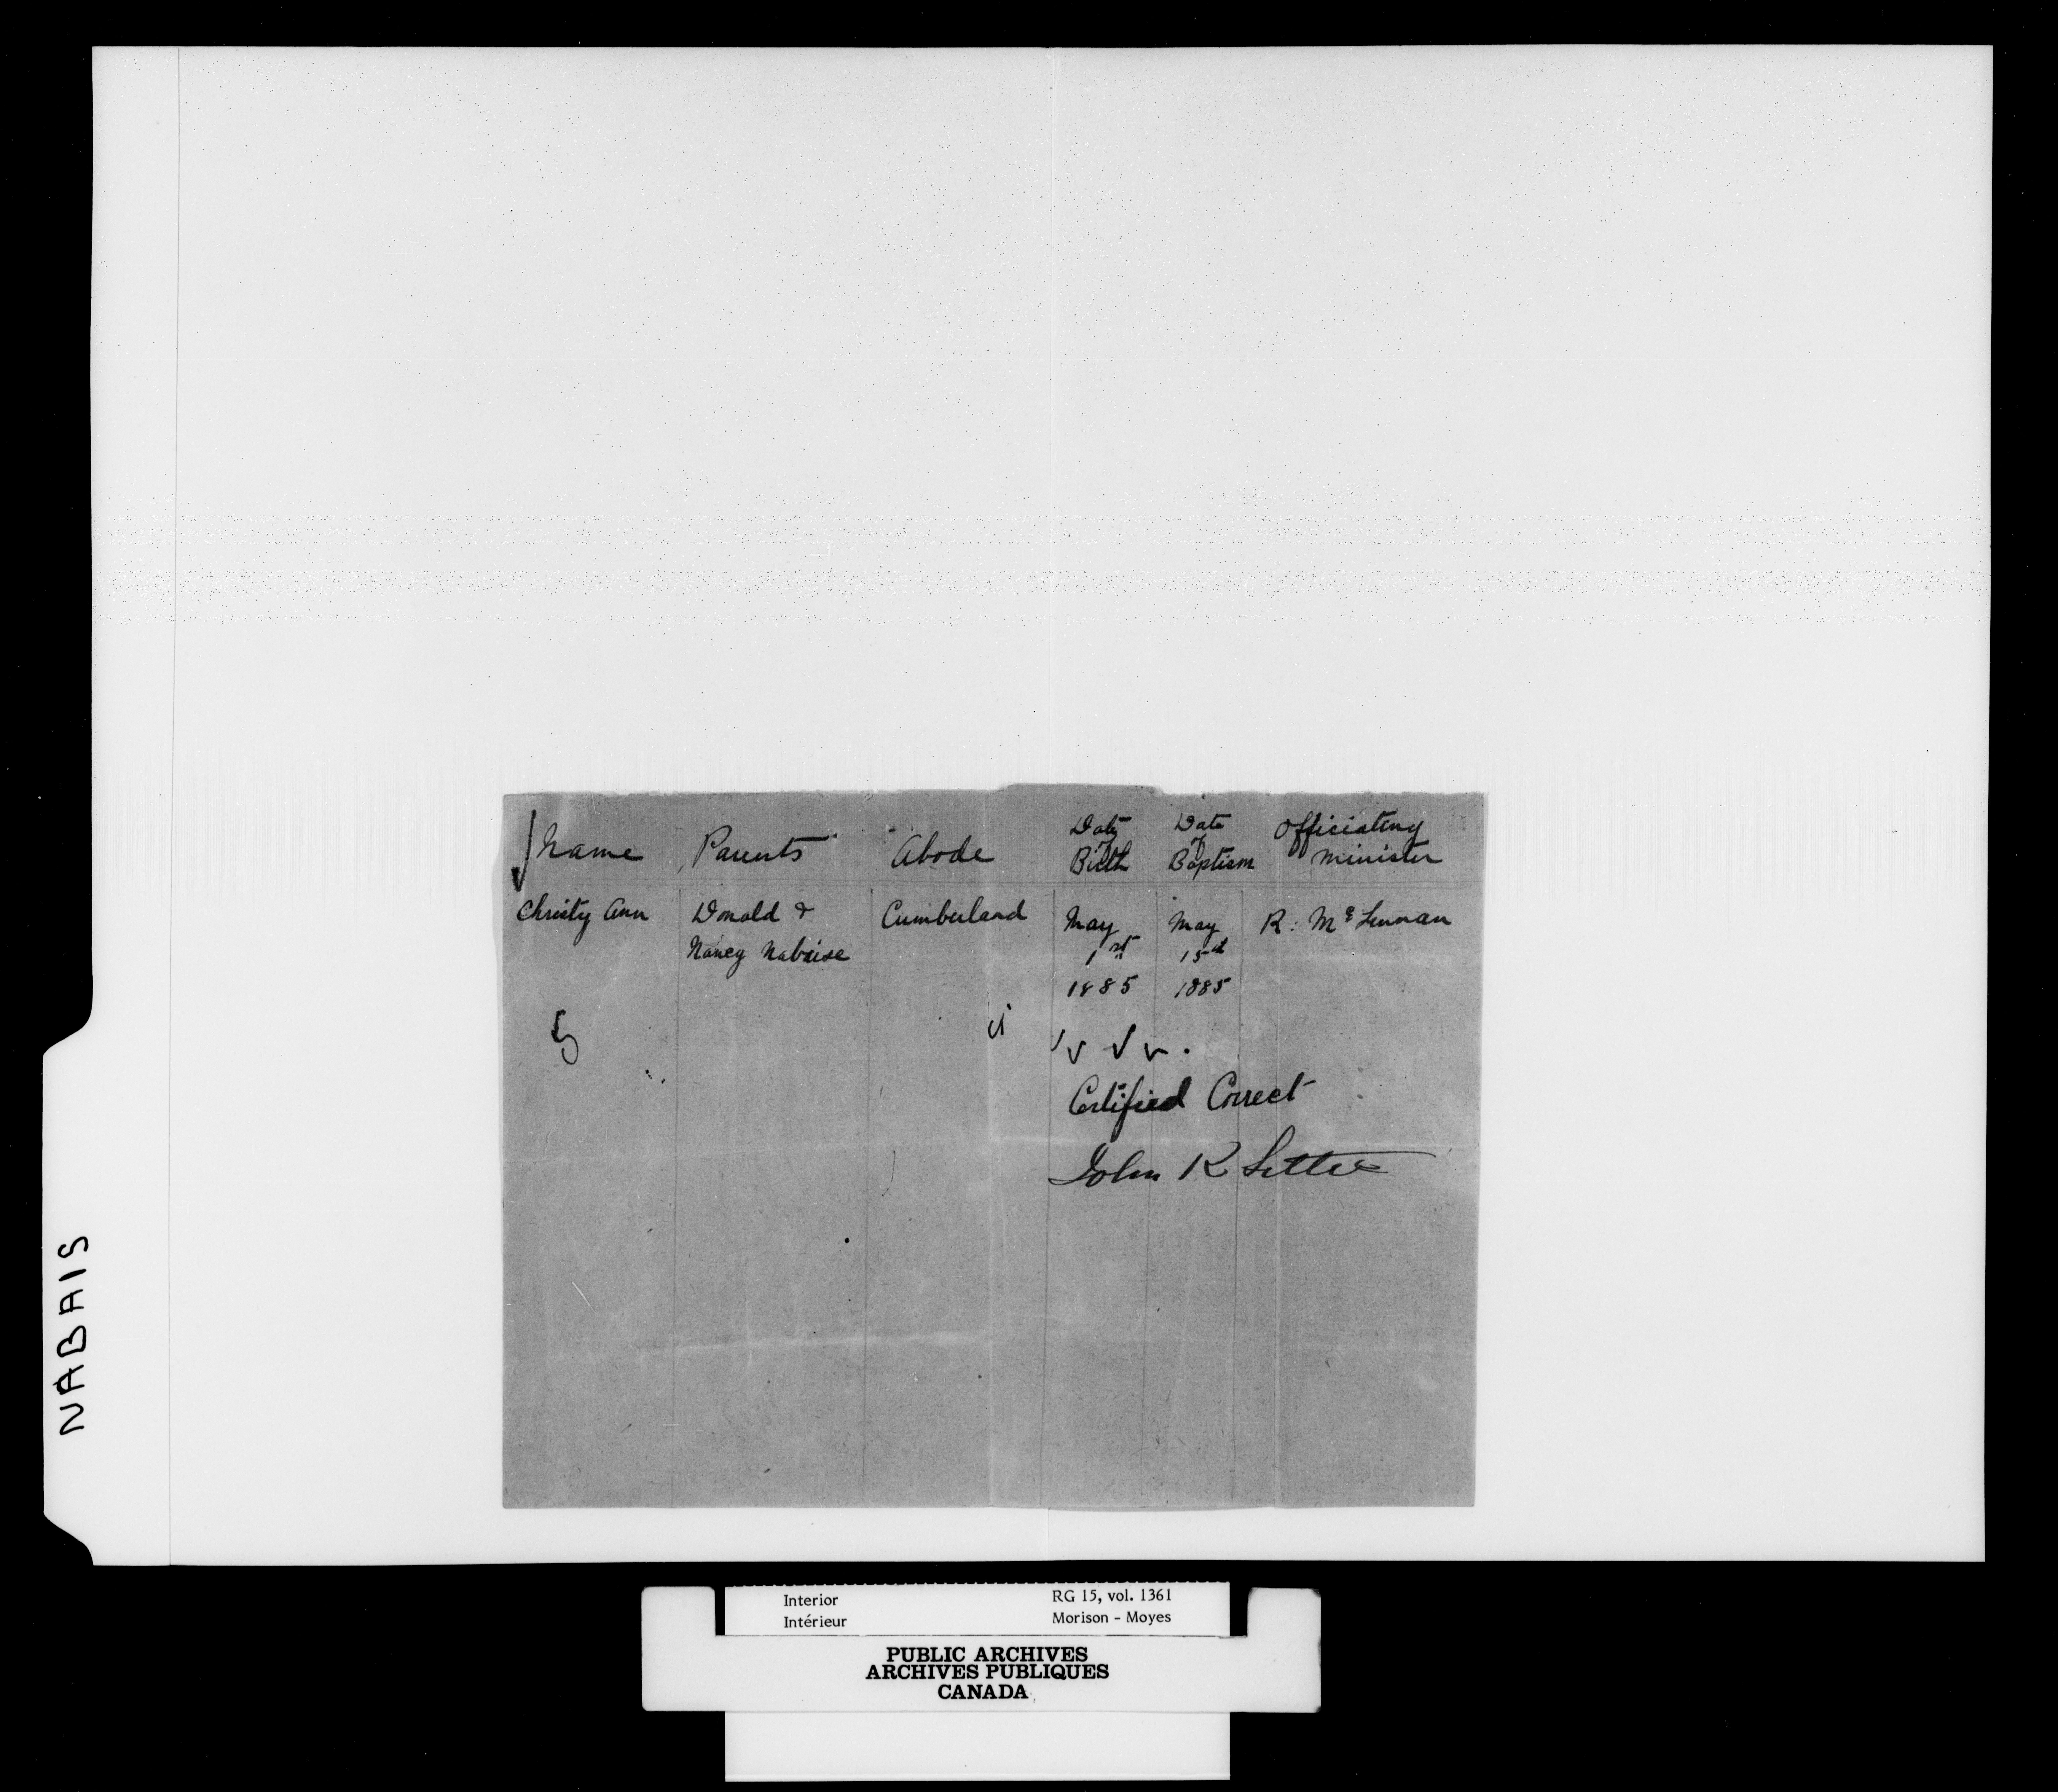 Name Parents Abode Date of Birth Date of Baptism Officiating Minister
Christy Ann Donald & Cumberland May May R. McLennan
Nancy Nabaise 1st 15th
1885 1885
Certified Correct
John R Settee
NABAIS
Interior RG 15, vol. 1361
Intérieur Morison - Moyes
PUBLIC ARCHIVES
ARCHIVES PUBLIQUES
CANADA